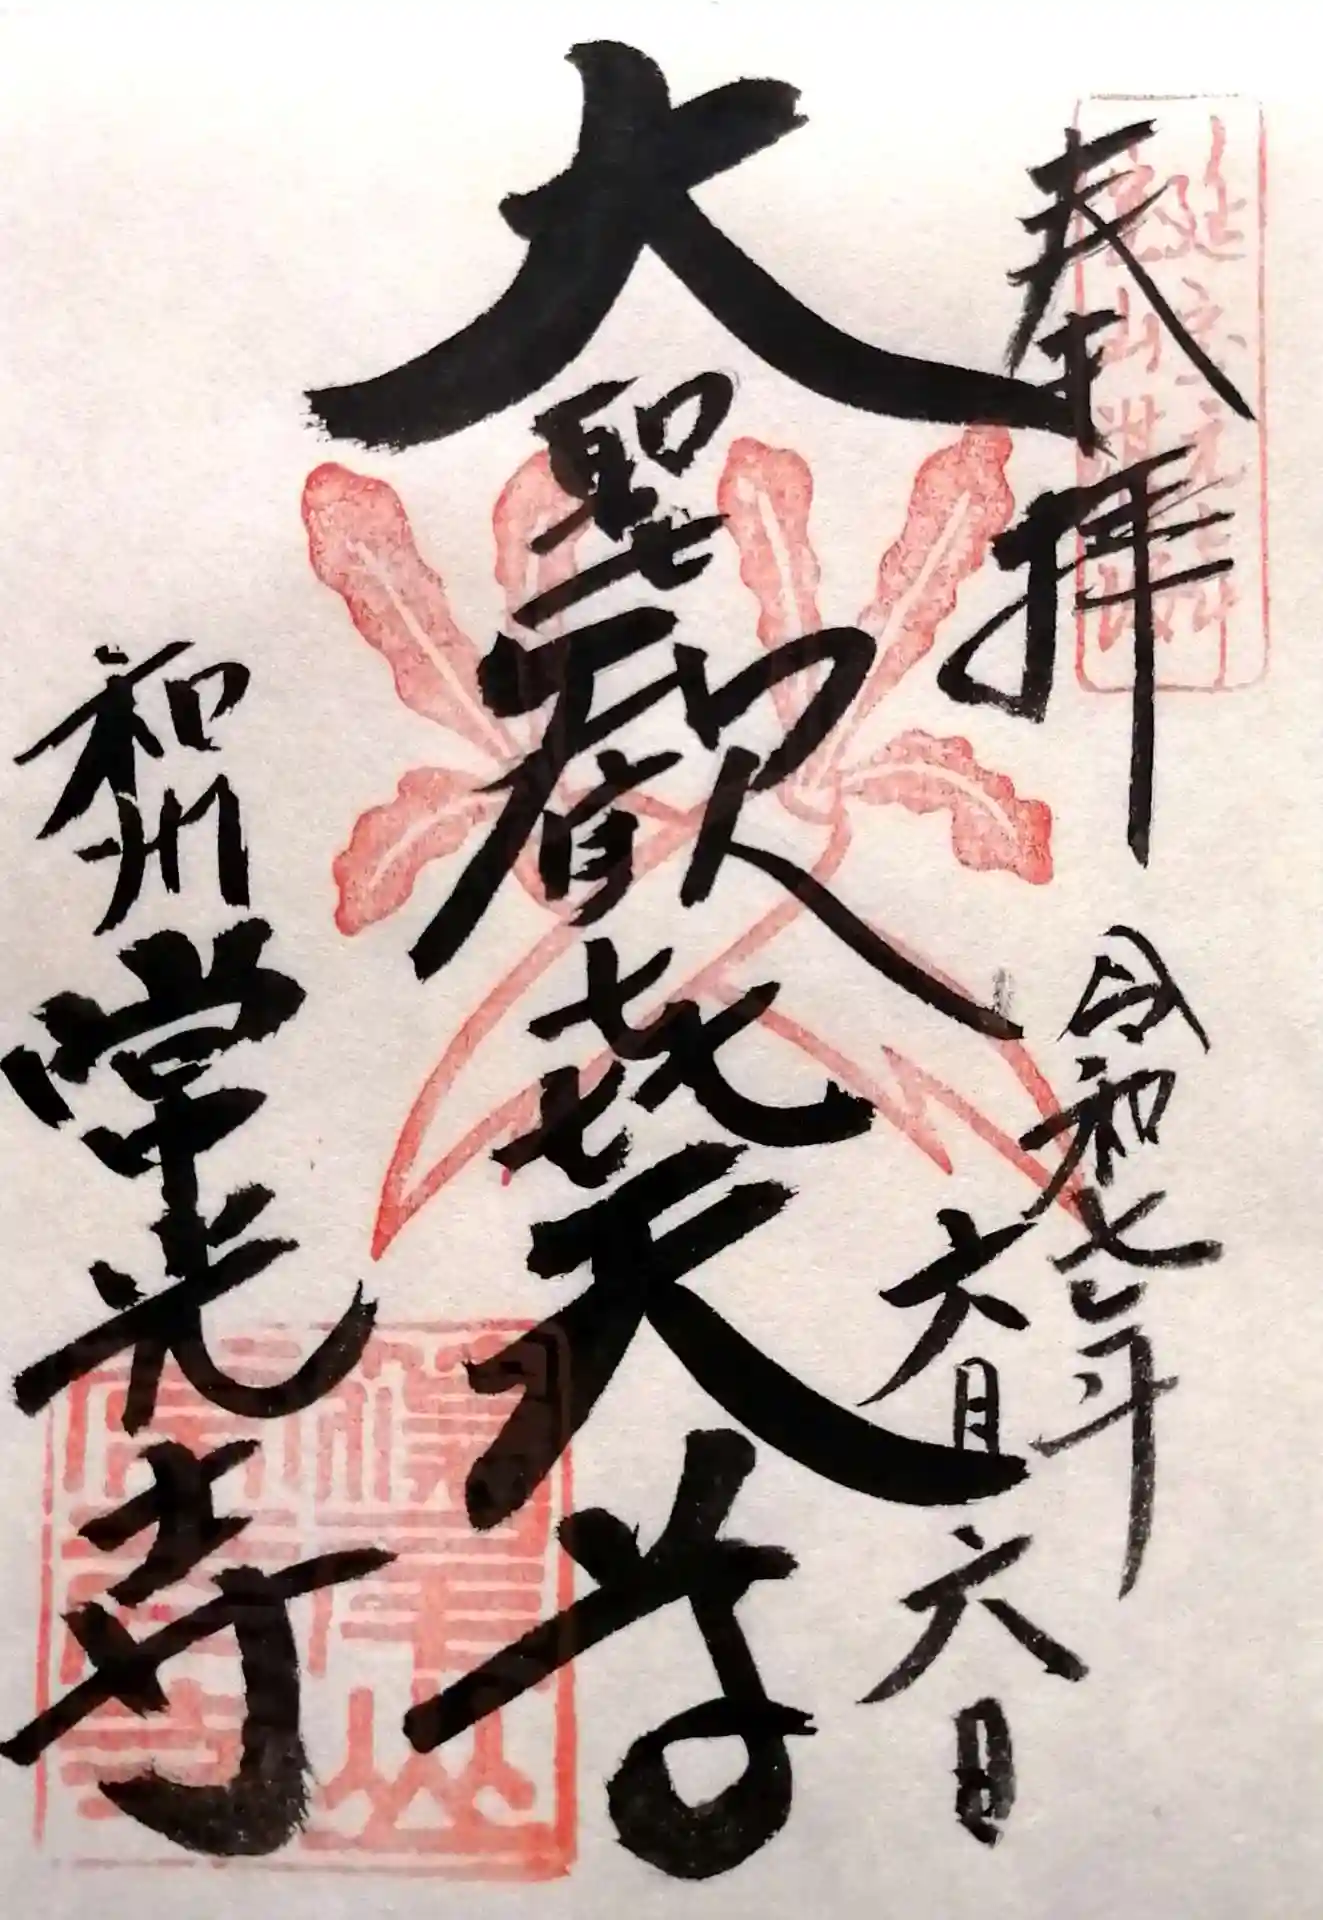 奉拝
令和七年
六月六日
大聖歓喜天尊
和州
常光寺